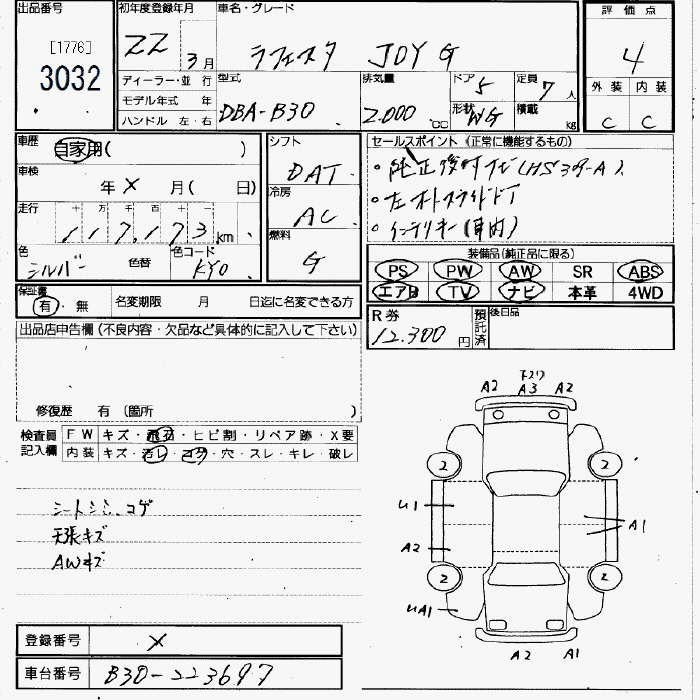 出品番号
[1776]
3032
初年度登録年月
22 年 3 月
ディーラー・並行
モデル年式 年
ハンドル 左・右
車名・グレード
ラフェスタ JOY G
型式
DBA-B30
排気量
2.000 cc
ドア
5
形状
WG
定員
7 人
積載
kg
評価点
4
外装 内装
C C
車歴
自家用( )
車検
年 X 月(日)
走行
十 万 千 百 十 一
117,173 km
色
シルバー
色替
色コード
KY0
シフト
DAT
冷房
AC
燃料
G
セールスポイント (正常に機能するもの)
・純正後付ナビ(HS309-A)
・左オートスライドドア
・インテリキー(車内)
装備品(純正品に限る)
PS PW AW SR ABS
エアB TV ナビ 本革 4WD
保証書
有・無
名変期限 月 日迄に名変できる方
R券
12.300 円
預託済
後日品
出品店申告欄(不良内容・欠品など具体的に記入して下さい)
修復歴 有 (箇所 )
検査員記入欄
FW キズ・飛石・ヒビ割・リペア跡・X要
内装 キズ・汚レ・コゲ・穴・スレ・キレ・破レ
シートシミ、コゲ
天張キズ
AWキズ
A2 A3 A2
2 2
U1
A1
A2
2 2
UA1
A2 A1
登録番号
X
車台番号
B30-223697